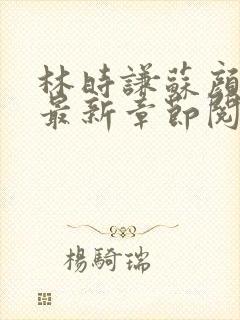 林時謙蘇顏
最新章節閱
楊騎瑞